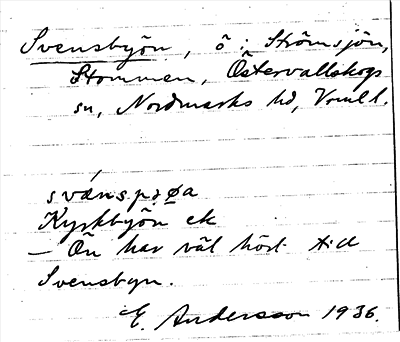 Svensbyön, ö i Strömsjön,
Stommen, Östervallskogs
sn, Nordmarks hd, Vrml l.
svánsp
Kyrkbyön ek
— Ön har väl hört till
Svensbyn.
E. Andersson 1936.